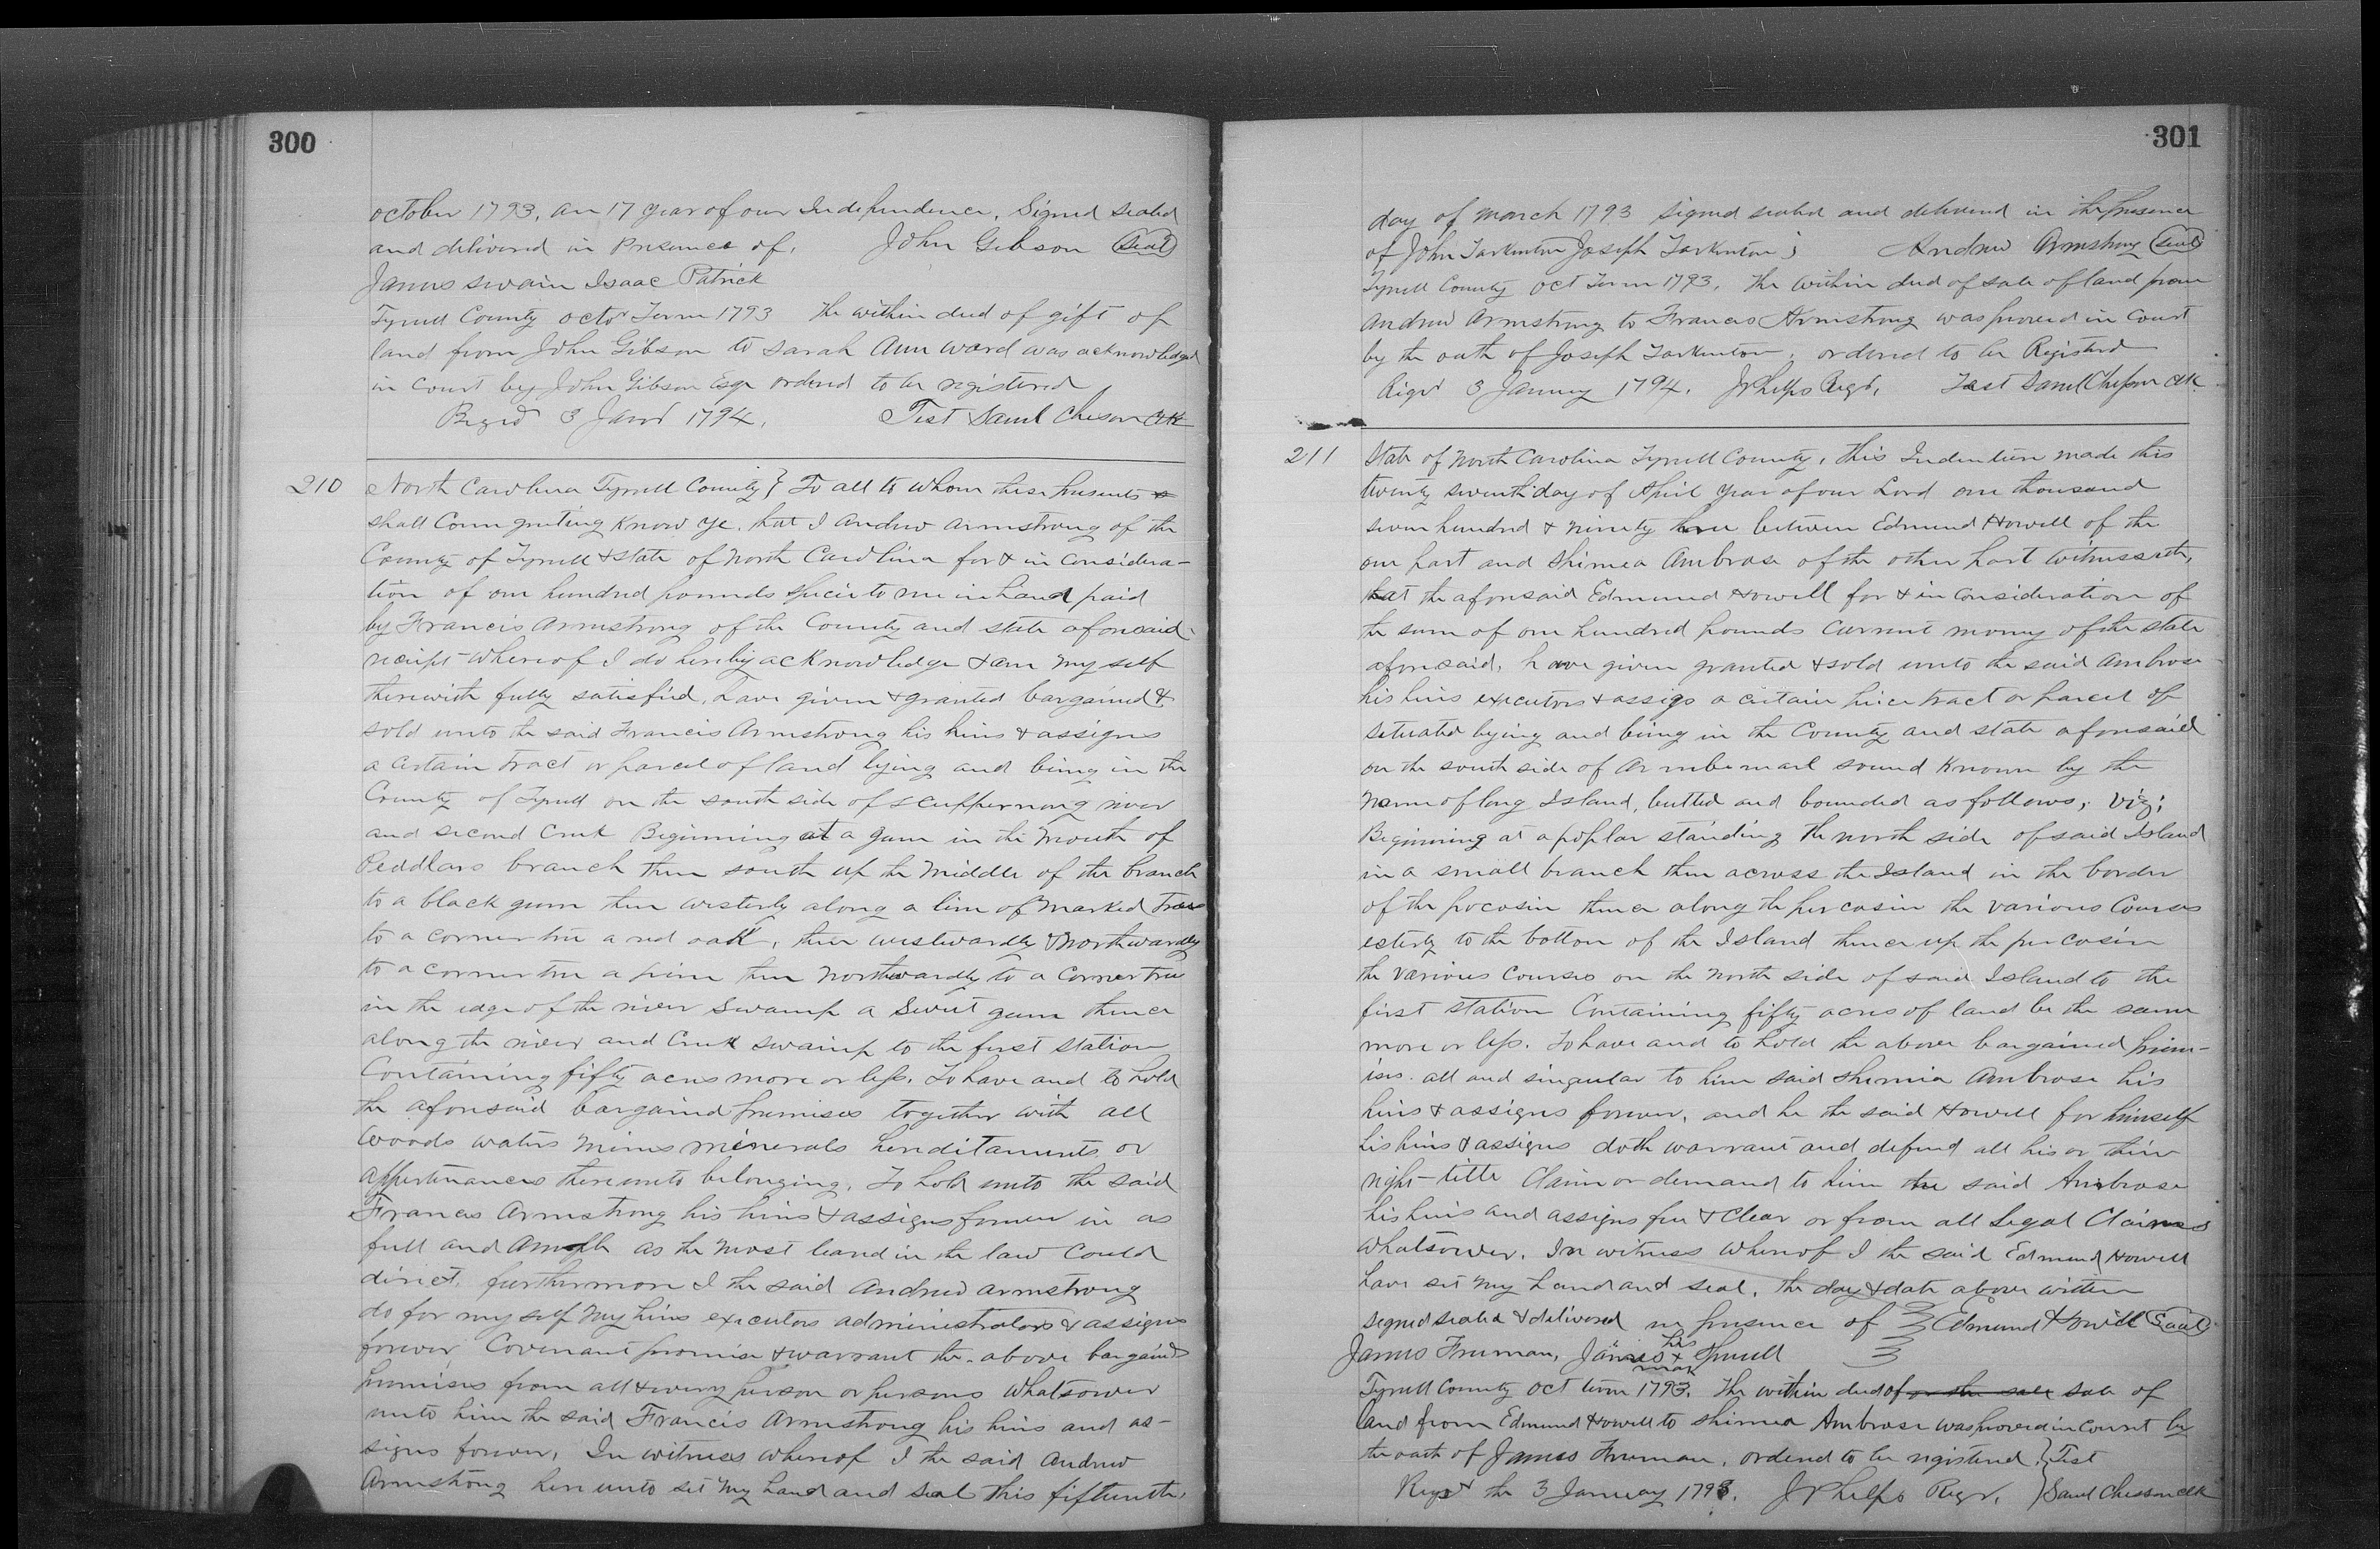 300
october 1793, an 17 year of our Independence, Signed sealed
and delivered in Presence of, John Gibson Seal
James swain Isaac Patrick
Tyrrell County octor Term 1793 The within deed of gift of
land from John Gibson to Sarah Ann Ward was acknowledged
in court by John Gibson Esqr ordered to be registered
Regrd 3 Janr 1794, Test Saml Cheson Clk
210 North Carolina Tyrrell County } To all to whom these presents
shall Come greeting Know ye, that I Andrew Armstrong of the
County of Tyrrell & state of North Carolina for & in considera-
tion of one hundred pounds specie to me in hand paid
by Francis Armstrong of the County and state aforesaid
receipt whereof I do hereby acknowledge & am my self
therewith fully satisfied, have given & granted bargained &
sold unto the said Francis Armstrong his heirs & assigns
a certain tract or parcel of land lying and being in the
County of Tyrrell on the south side of scuppernong river
and second Creek Beginning at a gum in the mouth of
Peddlars branch then south up the middle of the branch
to a black gum then westerly along a line of marked Trees
to a corner tree a red oak, then westwardly & northwardly
to a corner tree a pine then northwardly to a corner tree
in the edge of the river swamp a sweet gum thence
along the river and Creek swamp to the first station
Containing fifty acres more or less. To have and to hold
the aforesaid bargained premises together with all
woods waters mines minerals hereditaments or
appertenances thereunto belonging, To hold unto the said
Francis Armstrong his heirs & assigns forever in as
full and ample as the most learnd in the law could
direct, furthermore I the said Andrew Armstrong
do for my self my heirs executors administrators & assigns
forever, Covenant promise & warrant the above bargained
premises from all & every person or persons whatsoever
unto him the said Francis Armstrong his heirs and as-
signs forever, In witness whereof I the said Andrew
Armstrong hereunto set my hand and seal this fifteenth,
301
day of march 1793 signed sealed and delivered in the presence
of John Tarkinton Joseph Tarkinton } Andrew Armstrong seal
Tyrrell County Oct Term 1793, The within deed of sale of land from
Andrew Armstrong to Francis Armstrong was proved in Court
by the oath of Joseph Tarkinton, ordered to be Registerd
Rigrd 3 January 1794. J Phelps Regr. Test Saml Chesson Clk.
211 State of North Carolina Tyrrell County, this Indenture made this
twenty seventh day of April year of our Lord one thousand
seven hundred & ninety three between Edmund Howell of the
one part and Shimea Ambrose of the other part witnesseth,
that the aforesaid Edmund Howell for & in consideration of
the sum of one hundred pounds current money of the state
aforesaid, have given granted & sold unto the said Ambrose
his heirs executors & assigs a certain piece tract or parcel of
situated lying and being in the County and state aforesaid
on the south side of Armbemarl sound known by the
name of long Island, butted and bounded as follows, viz;
Beginning at a poplar standing the north side of said Island
in a small branch then across the Island in the border
of the pocosin thence along the percosin the various Courses
esterly to the bottom of the Island thence up the percosin
the various courses on the north side of said Island to the
first station Containing fifty acres of land be the same
more or less. To have and to hold the above bargained prem-
ises. all and singular to him said Shemia Ambrose his
heirs & assigns forever, and he the said Howell for himself
his heirs & assigns doth warrant and defend all his or their
right-title Claim or demand to him the said Ambrose
his heirs and assigns free & clear or from all Legal Claims
whatsoever. In witness whereof I the said Edmund Howell
have set my hand and seal, the day & date above written
signed sealed & delivered in presence of } Edmund Howell Seal
James Fruman, James his x mark Spruell
Tyrrell County Oct term 1793. The within deed of or the sale sale of
land from Edmund Howell to Shimea Ambrose was proved in Court by
the oath of James Fruman, ordered to be registered. } Test
Regrd the 3 January 1793. J Phelps Regr, } Saml Chesson clk